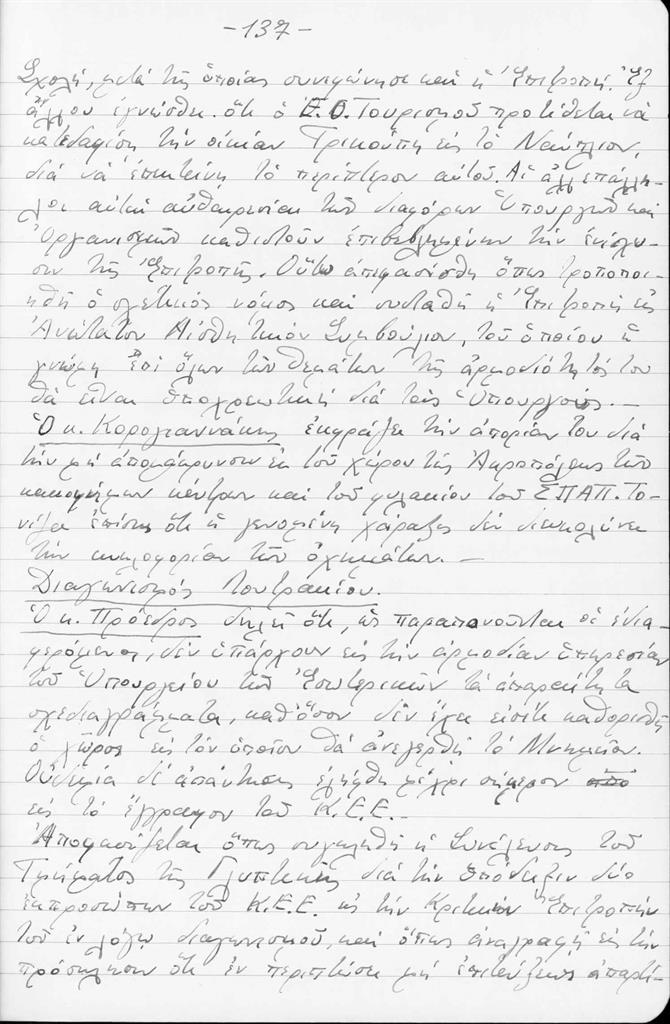 -137-
Σχολή, μετά τῆς ὁποίας συνεφώνησε καί ἡ Ἐπιτροπή. Ἐξ
ἄλλου ἐγνώσθη ὅτι ὁ Ε.Ο.Τουρισμοῦ προτίθεται νά
κατεδαφίση τήν οἰκίαν Τρικούπη εἰς τό Ναύπλιον,
διά νά ἐπεκτείνη τό περίπτερον αὐτοῦ. Αἱ ἀλλεπάλλη-
λοι αὐταί αὐθαιρεσίαι τῶν διαφόρων Ὑπουργῶν καί
Ὀργανισμῶν καθιστοῦν ἐπιβεβλημένην τήν ἐνίσχυ-
σιν τῆς Ἐπιτροπῆς. Οὕτω ἀπεφασίσθη ὅπως τροποποι-
ηθῆ ὁ σχετικός νόμος καί συσταθῆ ἡ Ἐπιτροπή εἰς
Ἀνώτατον Αἰσθητικόν Συμβούλιον, τοῦ ὁποίου ἡ
γνώμη ἐπί ὅλων τῶν θεμάτων τῆς ἁρμοδιότητός του
θά εἶναι ὑποχρεωτική διά τούς Ὑπουργούς.—
Ὁ κ. Κορογιαννάκης ἐκφράζει τήν ἀπορίαν του διά
τήν μή ἀπομάκρυνσιν ἐκ τοῦ χώρου τῆς Ἀκροπόλεως τῶν
κακοφήμων κέντρων καί τοῦ φυλακίου τοῦ ΣΠΑΠ. Το-
νίζει ἐπίσης ὅτι ἡ γενομένη χάραξις δέν διευκολύνει
τήν κυκλοφορίαν τῶν ὀχημάτων.—
Διαγωνισμός Τουτρακίου.
Ὁ κ. Πρόεδρος δηλεῖ ὅτι, ὡς παραπονοῦνται οἱ ἐνδια-
φερόμενοι, δέν ὑπάρχουν εἰς τήν ἁρμοδίαν ὑπηρεσίαν
τοῦ Ὑπουργείου τῶν Ἐσωτερικῶν τά ἀπαραίτητα
σχεδιαγράμματα, καθ' ὅσον δέν ἔχει εἰσέτι καθορισθῆ
ὁ χῶρος εἰς τόν ὁποῖον θά ἀνεγερθῆ τό Μνημεῖον.
Οὐδεμία δέ ἀπάντησις ἐλήφθη μέχρι σήμερον
εἰς τό ἔγγραφον τοῦ Κ.Ε.Ε.—
Ἀποφασίζεται ὅπως συγκληθῆ ἡ Συνέλευσις τοῦ
Τμήματος τῆς Γλυπτικῆς διά τήν ὑπόδειξιν δύο
ἐκπροσώπων τοῦ Κ.Ε.Ε. εἰς τήν Κριτικήν Ἐπιτροπήν
τοῦ ἐν λόγω διαγωνισμοῦ, καί ὅπως ἀναγραφῆ εἰς τήν
πρόσκλησιν ὅτι ἐν περιπτώσει μή ἐπιτεύξεως ἀπαρτί-